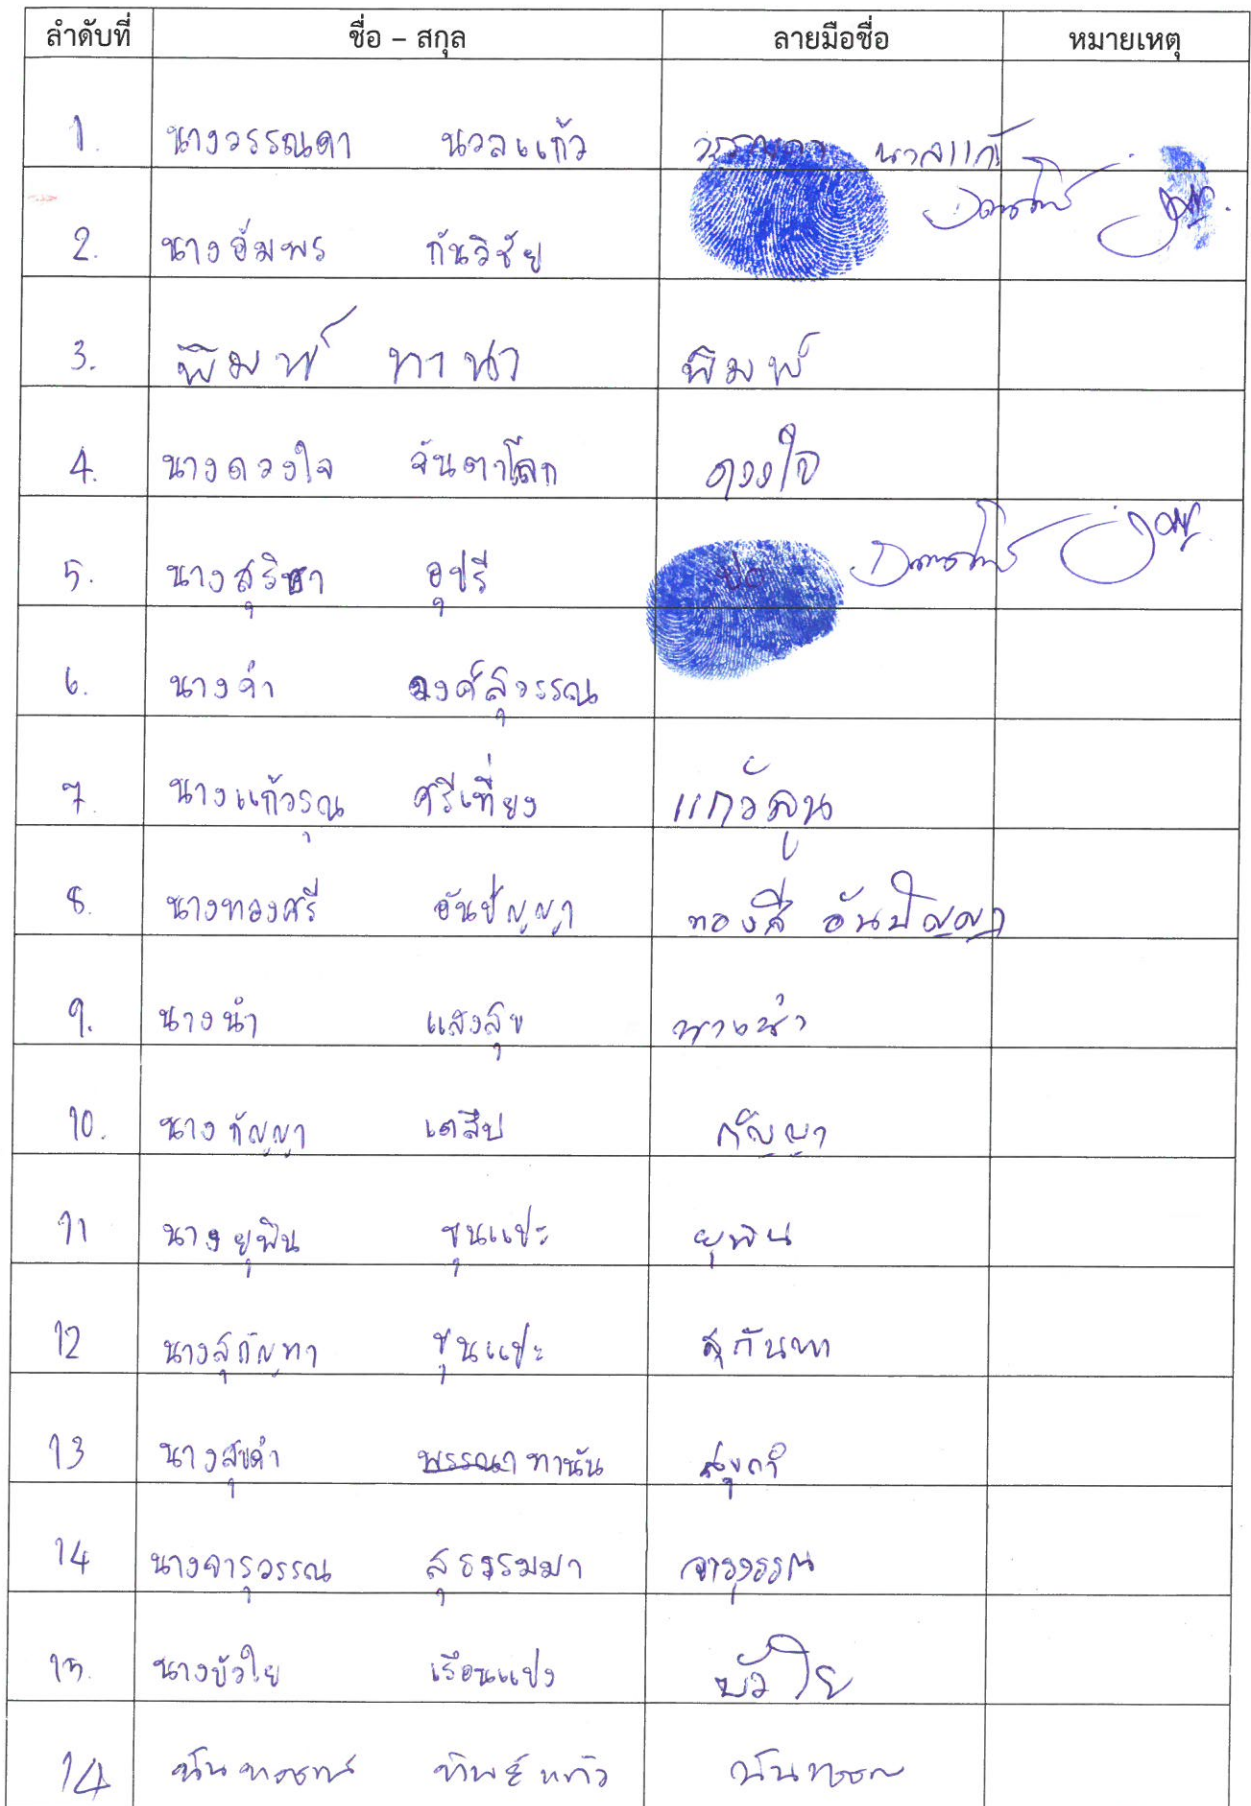 ลำดับที่ ชื่อ – สกุล ลายมือชื่อ หมายเหตุ
1. นางวรรณดา นวลแก้ว นวลแก้
2. นางอัมพร กันวิชัย
3. พิมพ์ ทานา พิมพ์
4. นางดวงใจ จันตาโลก ดวงใจ
5. อุปรี
6. นางคำ วงศ์สุวรรณ
7. นางแก้วรุณ ศรีเที่ยง แก้วลูน
8. นางทองศรี อันปัญญา ทองสี อันปัญญา
9. นางนำ แสงสุข นางนำ
10. นางกัญญา เตสืบ กัญญา
11 นางยุพิน ขุนแปะ ยุพิน
12 นางสุกัญทา ขุนแปะ สุกันทา
13 นางสุขคำ ทานัน สุขคำ
14 นางจารุวรรณ สุธรรมมา จารุวรรณ
15. นางบัวใย เรือนแปง บัวใย
14